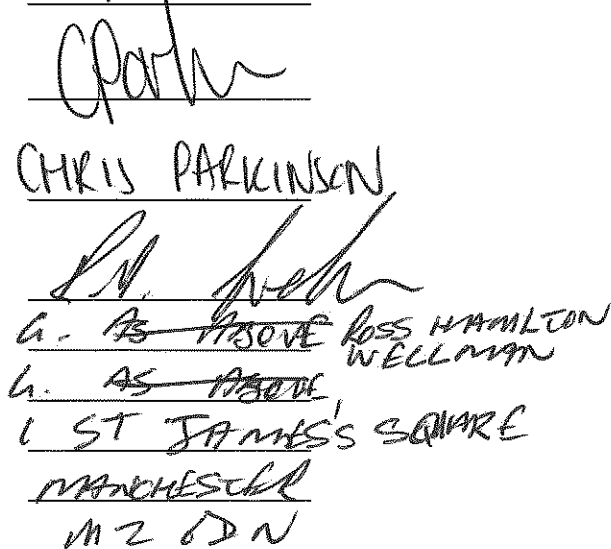 CHRIS PARKINSON
G. AS ABOVE ROSS HAMILTON
WELLMAN
G. AS ABOVE
1 ST JAMES'S SQUARE
MANCHESTER
M2 6DN